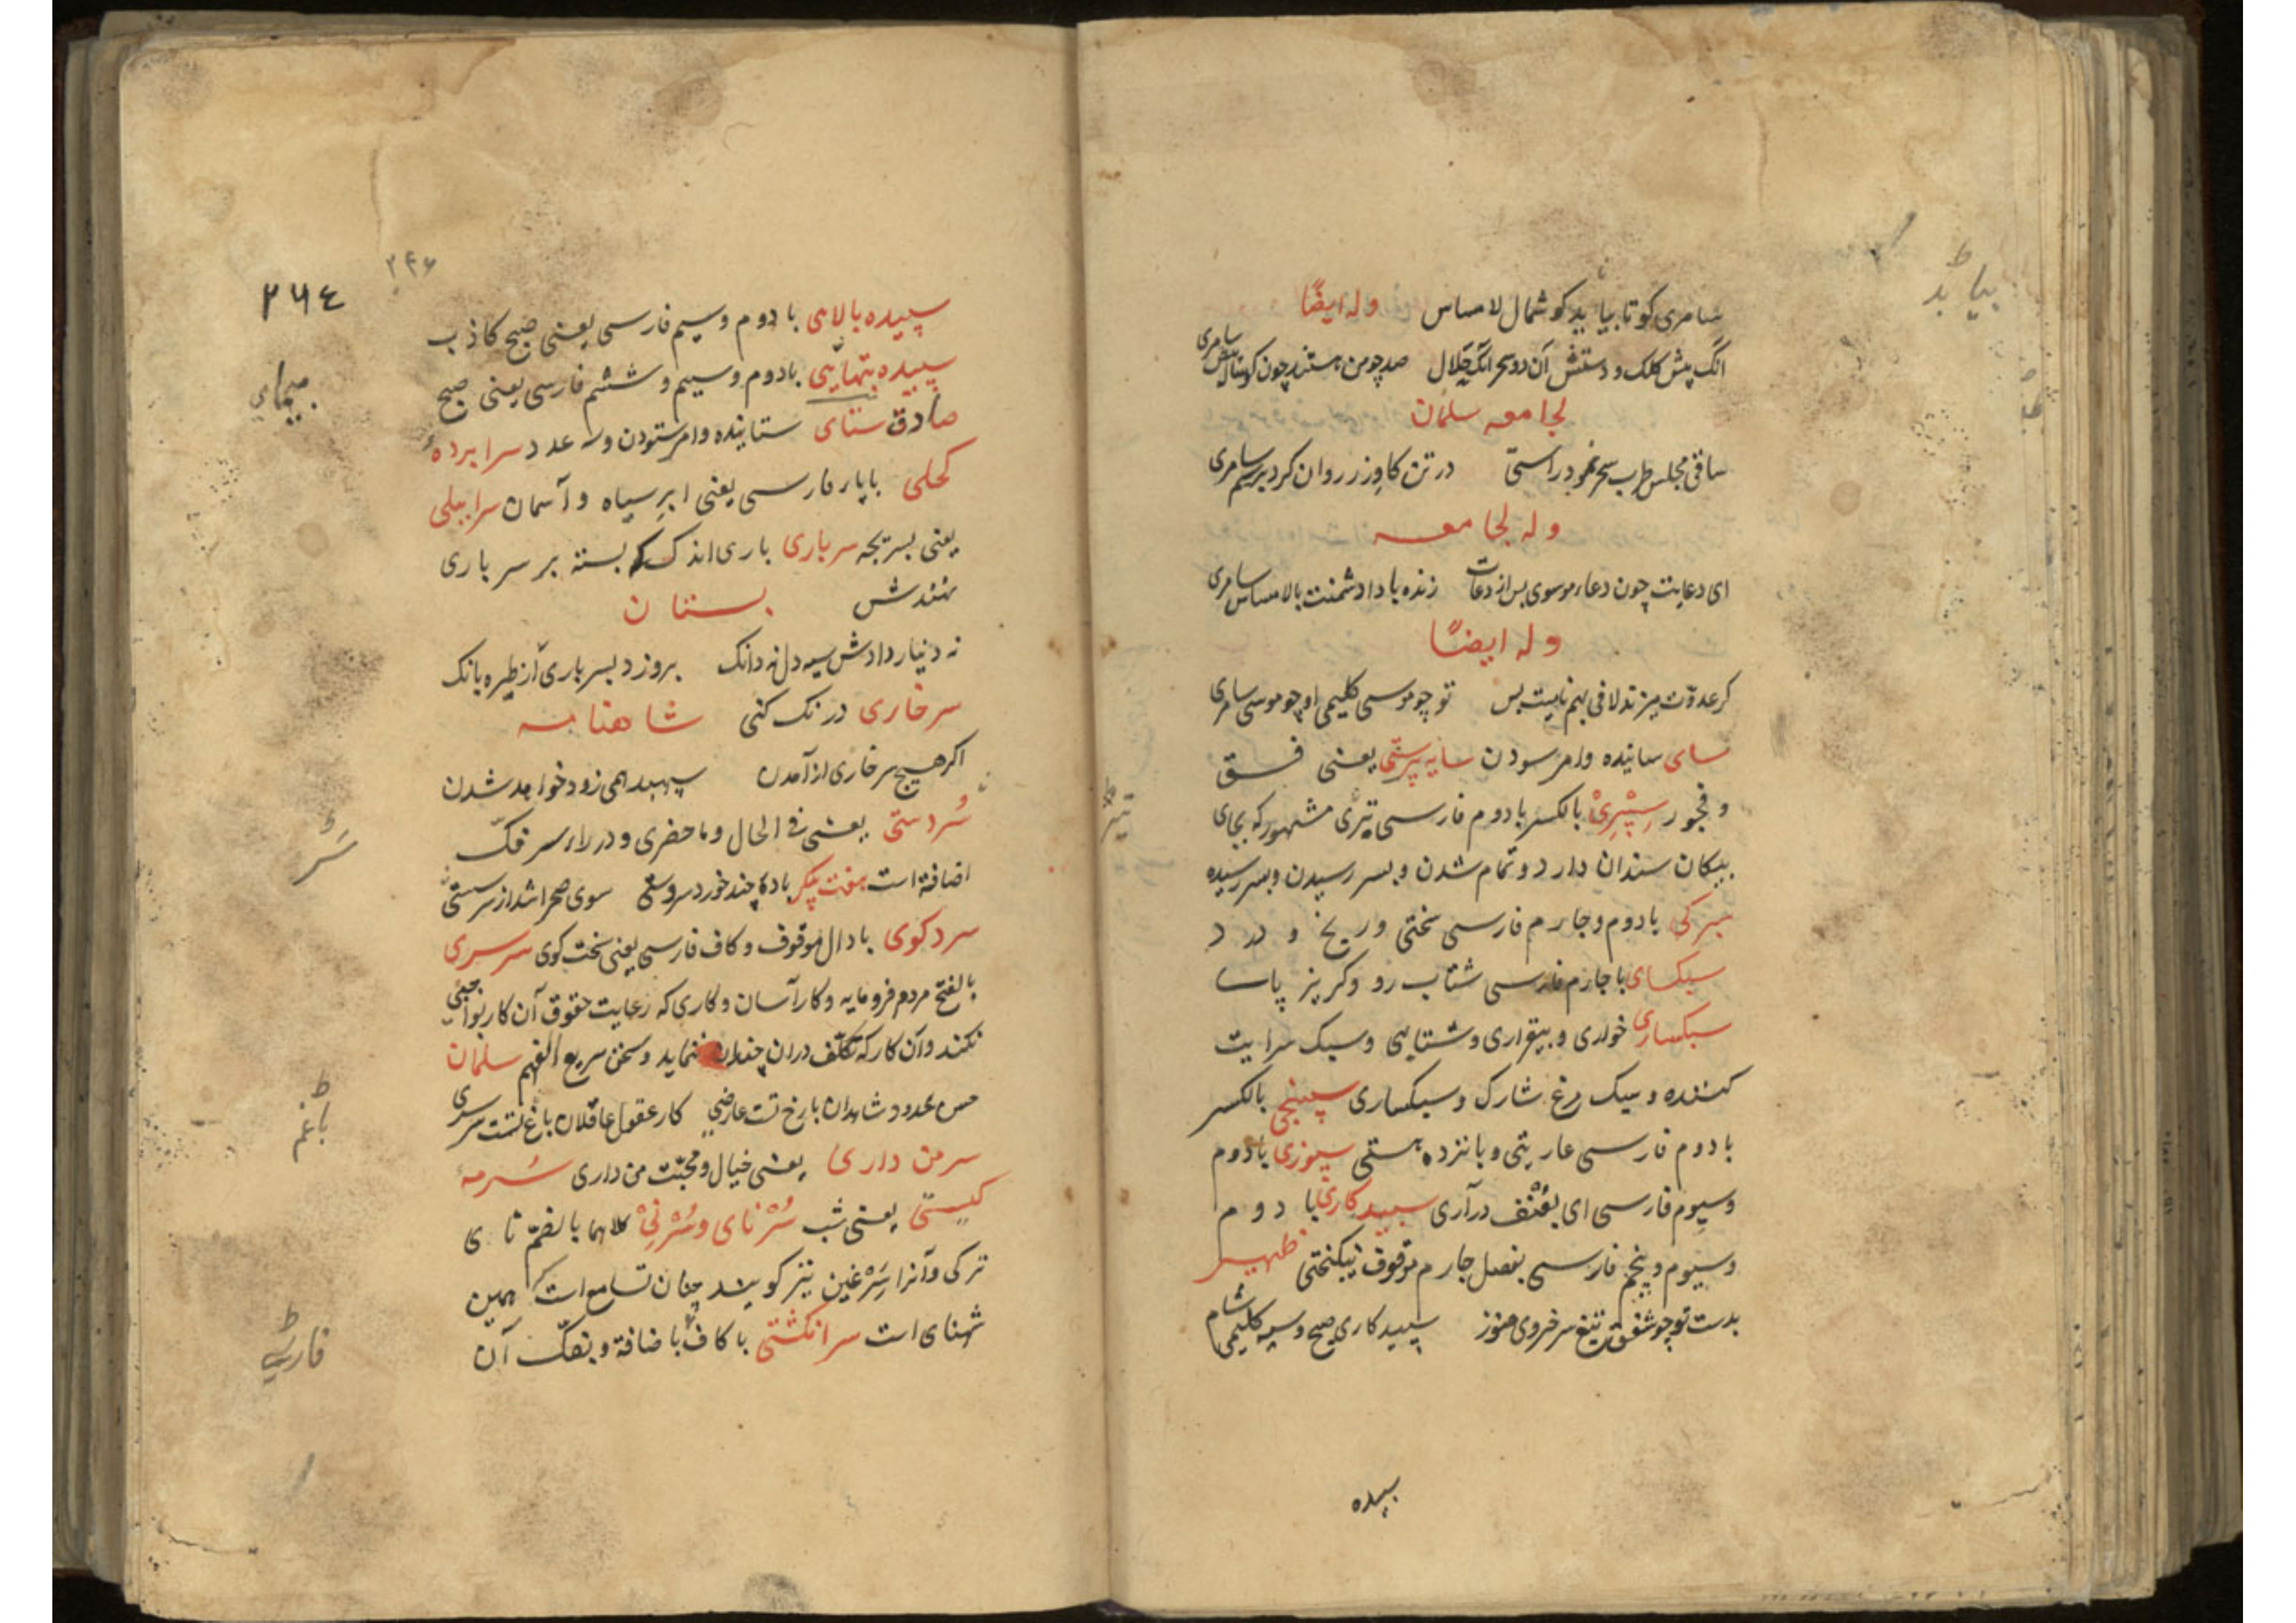 سامری کو تا بیاید کوشمال لامساس وله ایضًا
انک پیش کلک و دستش آن دو سحر انکه حلال صد چو من هستند چون کوساله پیش سامری
لجامعه سلمان
ساقی مجلس طرب سحر نمود راستی در تن کاو زر روان کرد برسم سامری
وله لجامعه
ای دعایت چون دعاء موسوی بس از دعات زنده بادا دشمنت با لامساس سامری
وله ایضًا
کر عدوّت میزند لافی بهم نایست بس تو چو موسی کلیمی او چو موسی سامری
سای ساینده وامر سودن سایه پرستی یعنی فسق
و فجور سِپْرِیْ بالکسر با دوم فارسی تیری مشهور که بجای
پیکان سندان دارد و تمام شدن و بسر رسیدن و بسر رسیده
سبرکی با دوم و چارم فارسی سختی و ریخ و درد
سبکسای با چارم فارسی شتاب رو و کریز پا
سبکساری خواری و بیقراری و شتابی و سبک سرایت
کننده و سبک مرغ شارک و سبکساری سپنجی بالکسر
با دوم فارسی عاریتی و پانزده هستی سپوزی با دوم
وسیوم فارسی ای بعُنْف درآری سپیدکاری با دوم
وسیوم و پنجم فارسی بفصل چارم موقوف نیکبختی ظهیر
بدست تو چو شفق تیغ سرخروی هنوز سپیدکاری صبح و سیه کلیمی شام
سپیده
بیاید
تیر
۲۶٤
۲۴۶
سپیده بالای با دوم وسیم فارسی یعنی صبح کاذب
سپیده بتهایی با دوم وسیم وششم فارسی یعنی صبح
صادق ستای ستاینده وامر ستودن وسه عدد سرابردهٔ
کحلی با پار فارسی یعنی ابر سیاه و آسمان سرابیلی
یعنی بسریجه سرباری باری اندک که بسته بر سر باری
نهندش بستان
نه دینار دادش سیه دل نه دانک بروزد بسرباری از طیره بانک
سرخاری درنک کنی شاهنامه
اکر هیچ سرخاری از آمدن سپهبد همی زود خواهد شدن
سُردستی یعنی فی الحال و ماحضری و در راء سر فکّ
اضافة است هفت پیکر باده چند خورد سردستی سوی صحرا شد از سر مستی
سردکوی با دال موقوف وکاف فارسی یعنی سخت کوی سرسری
بالفتح مردم فرومایه وکار آسان وکاری که رعایت حقوق آن کار بواجبی
نکنند وآن کار که تکلّف دران چندان ننماید وسخن سریع الفهم سلمان
حسن محدود شاهدان با رخ تست عارضی کار عقول عاقلان با غم تست سرسری
سرمن داری یعنی خیال ومحبّت من داری سُرمهٔ
کیستی یعنی شب سُرْنای و سُرْنِیْ کلاهما بالضمّ نای
ترکی وآنرا سِرْغین نیز کویند چنان تسامع است که همین
شهنای است سرانکشتی با کاف باضافة وبفکّ آن
سَرْ
باغم
فارسی